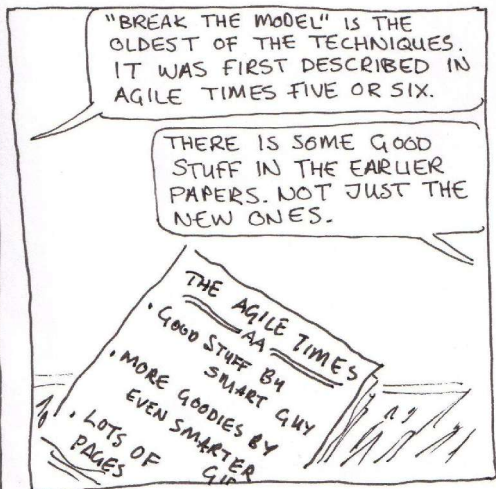 "BREAK THE MODEL" IS THE
OLDEST OF THE TECHNIQUES.
IT WAS FIRST DESCRIBED IN
AGILE TIMES FIVE OR SIX.
THERE IS SOME GOOD
STUFF IN THE EARLIER
PAPERS. NOT JUST THE
NEW ONES.
THE AGILE TIMES
AA
• GOOD STUFF BY
SMART GUY
• MORE GOODIES BY
EVEN SMARTER
• LOTS OF
PAGES